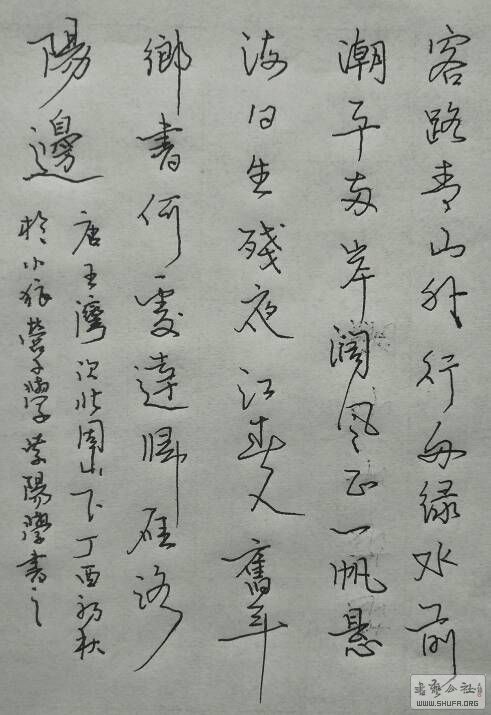 客路青山外行舟绿水前
潮平兩岸阔风正一帆悬
海日生殘夜江春入舊年
鄉書何處達歸雁洛
陽邊
唐王灣次北固山下丁酉初秋
於小營子陽學書之
書藝公社
WWW.SHUFA.ORG